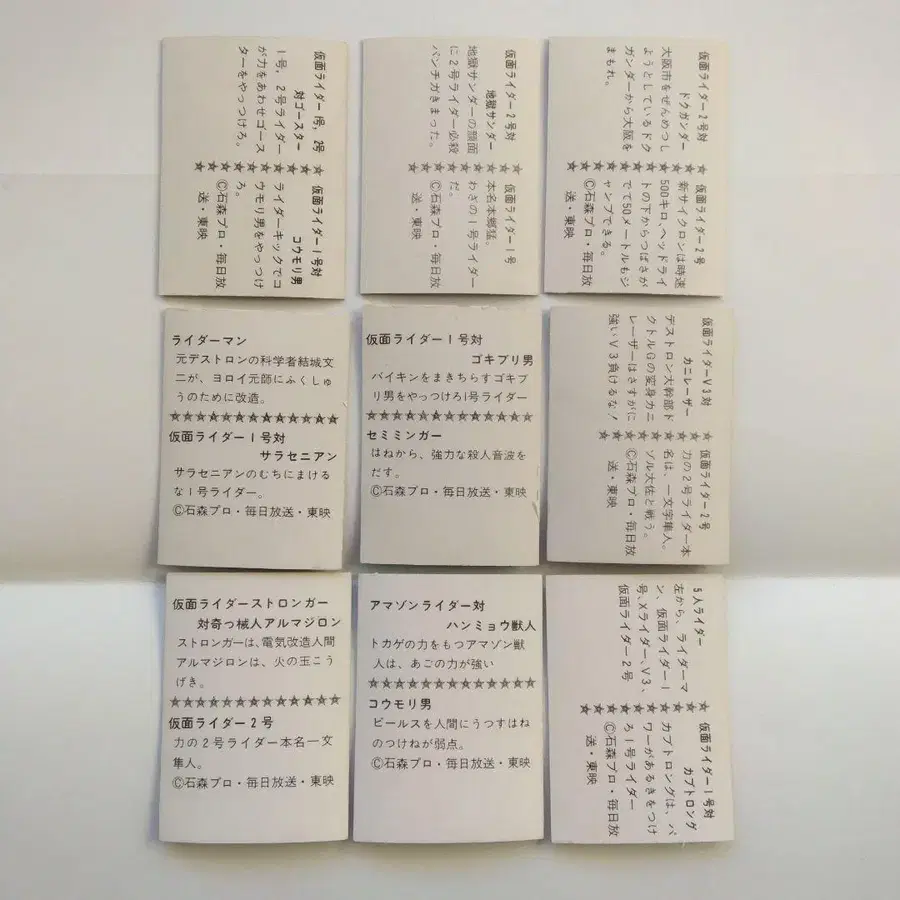 仮面ライダー1号, 2号
対ゴースター
1号, 2号ライダー
が力をあわせゴース
ターをやっつけろ。
仮面ライダー1号対
コウモリ男
ライダーキックでコ
ウモリ男をやっつけ
ろ。
©石森プロ・毎日放
送・東映
仮面ライダー2号対
地獄サンダー
地獄サンダーの顔面
に2号ライダー必殺
パンチがきまった。
仮面ライダー1号
本名本郷猛。
わざの1号ライダー
だ。
©石森プロ・毎日放
送・東映
仮面ライダー2号対
ドクガンダー
大阪市をぜんめつし
ようとしているドク
ガンダーから大阪を
まもれ。
仮面ライダー2号
新サイクロンは時速
500キロ、ヘッドライ
トの下からつばさが
でて50メートルもジ
ャンプできる。
©石森プロ・毎日放
送・東映
ライダーマン
元デストロンの科学者結城丈
二が、ヨロイ元師にふくしゅ
うのために改造。
仮面ライダー1号対
サラセニアン
サラセニアンのむちにまける
な1号ライダー。
©石森プロ・毎日放送・東映
仮面ライダー1号対
ゴキブリ男
バイキンをまきちらすゴキブ
リ男をやっつけろ1号ライダー
セミミンガー
はねから、強力な殺人音波を
だす。
©石森プロ・毎日放送・東映
仮面ライダーV3対
カニレーザー
デストロン大幹部ド
クトルGの変身カニ
レーザーはさすがに
強いV3負けるな!
仮面ライダー2号
力の2号ライダー本
名は、一文字隼人。
ゾル大佐と戦う。
©石森プロ・毎日放
送・東映
仮面ライダーストロンガー
対奇っ械人アルマジロン
ストロンガーは、電気改造人間
アルマジロンは、火の玉こう
げき。
仮面ライダー2号
力の2号ライダー本名一文
隼人。
©石森プロ・毎日放送・東映
アマゾンライダー対
ハンミョウ獣人
トカゲの力をもつアマゾン獣
人は、あごの力が強い
コウモリ男
ビールスを人間にうつすはね
のつけねが弱点。
©石森プロ・毎日放送・東映
5人ライダー
左から、ライダーマ
ン、仮面ライダー1
号、Xライダー、V3、
仮面ライダー2号
仮面ライダー1号対
カブトロング
カブトロングは、パ
ワーがあるきをつけ
ろ1号ライダー
©石森プロ・毎日放
送・東映